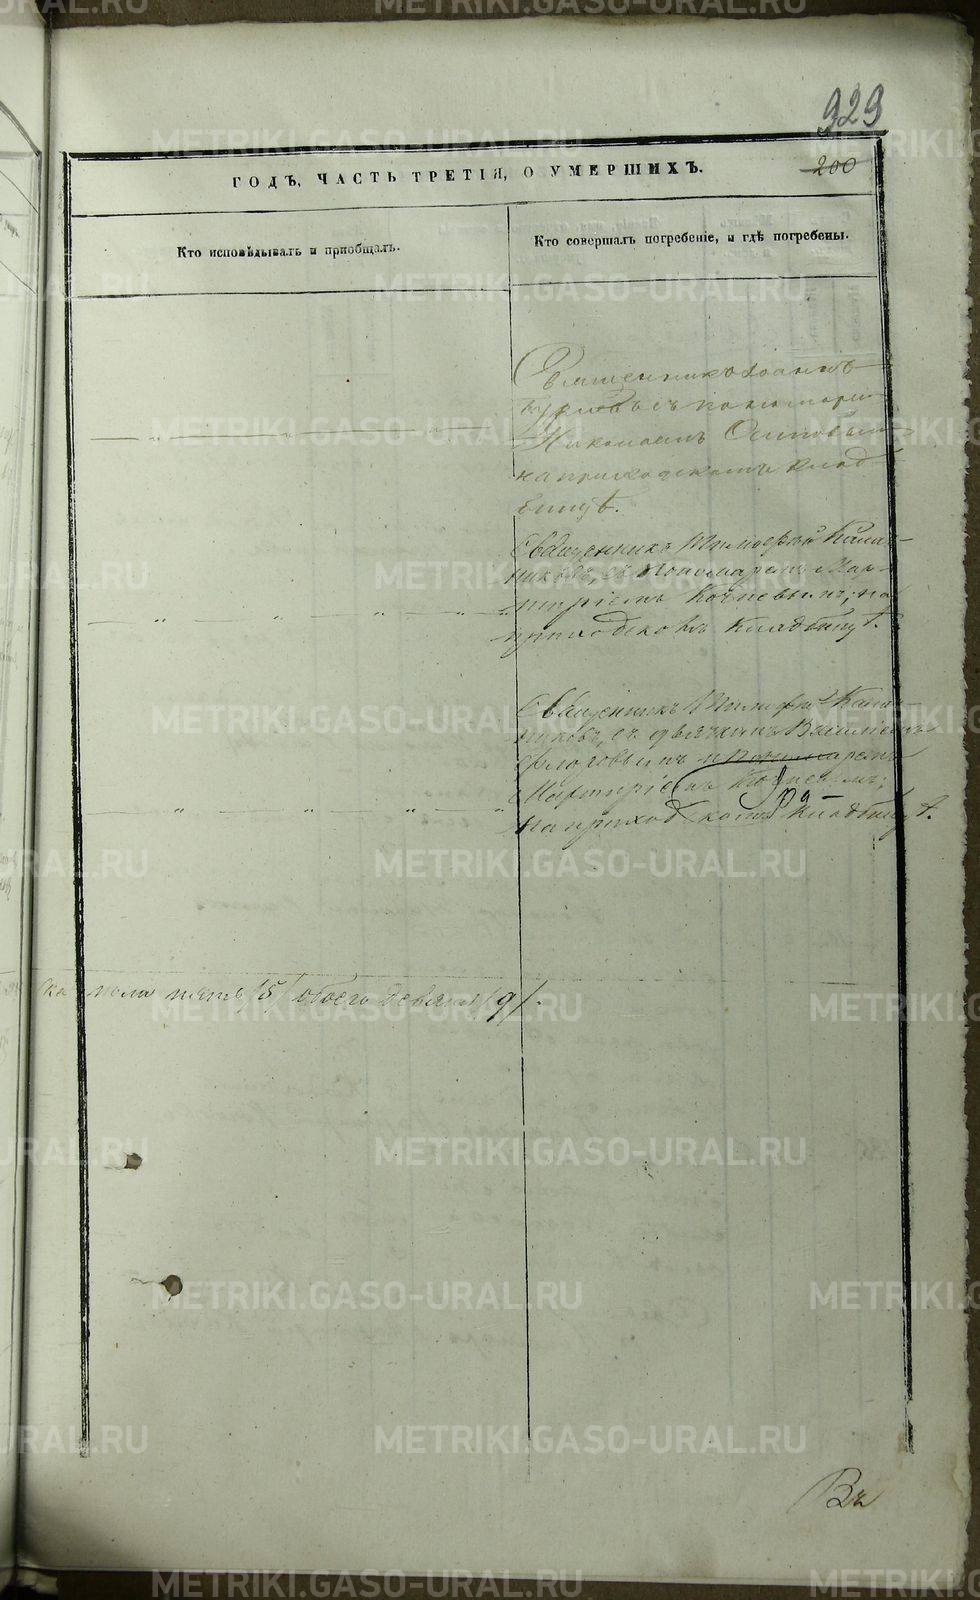 929
200
ГОДЪ, ЧАСТЬ ТРЕТІЯ, О УМЕРШИХЪ.
Кто исповѣдывалъ и пріобщалъ.
Кто совершалъ погребеніе, и гдѣ погребены.
Священникъ Іоаннъ
съ пономаремъ
Николаемъ Осиповымъ
на приходскомъ клад-
бищѣ.
Священникъ Тимофей Кала-
никовъ, съ Пономаремъ Мар-
тиріемъ Кочневымъ; на
приходскомъ кладбищѣ.
Священникъ Тимофей Кала-
никовъ, съ дьячкомъ Василіемъ
Флоровымъ и пономаремъ
Мартиріемъ Кочневымъ;
на приходскомъ кладбищѣ.
ска пола пять /5/ обоего девять /9/.
Въ
METRIKI.GASO-URAL.RU